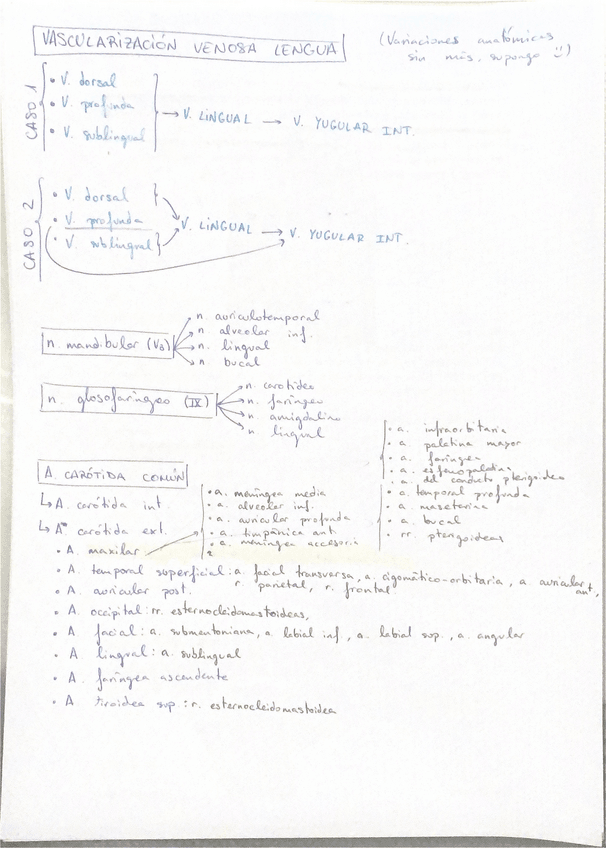 VASCULARIZACIÓN VENOSA LENGUA
(Variaciones anatómicas
sin más, supongo :))
CASO 1
• V. dorsal
• V. profunda
• V. sublingual
→ V. LINGUAL → V. YUGULAR INT.
CASO 2
• V. dorsal
• V. profunda
• V. sublingual
V. LINGUAL → V. YUGULAR INT.
n. mandibular (V3)
n. auriculotemporal
n. alveolar inf.
n. lingual
n. bucal
n. glosofaríngeo (IX)
n. carotídeo
n. faríngeo
n. amigdalino
n. lingual
A. CARÓTIDA COMÚN
↳ A. carótida int.
↳ A. carótida ext.
• A. maxilar
• a. meníngea media
• a. alveolar inf.
• a. auricular profunda
• a. timpánica ant.
• a. meníngea accesoria
• a. infraorbitaria
• a. palatina mayor
• a. faríngea
• a. esfenopalatina
• a. del conducto pterigoideo
• a. temporal profunda
• a. maseterina
• a. bucal
• rr. pterigoideas
• A. temporal superficial: a. facial transversa, a. cigomático-orbitaria, a. auricular ant.,
r. parietal, r. frontal
• A. auricular post.
• A. occipital: rr. esternocleidomastoideas,
• A. facial: a. submentoniana, a. labial inf, a. labial sup., a. angular
• A. lingual: a. sublingual
• A. faríngea ascendente
• A. tiroidea sup.: r. esternocleidomastoidea